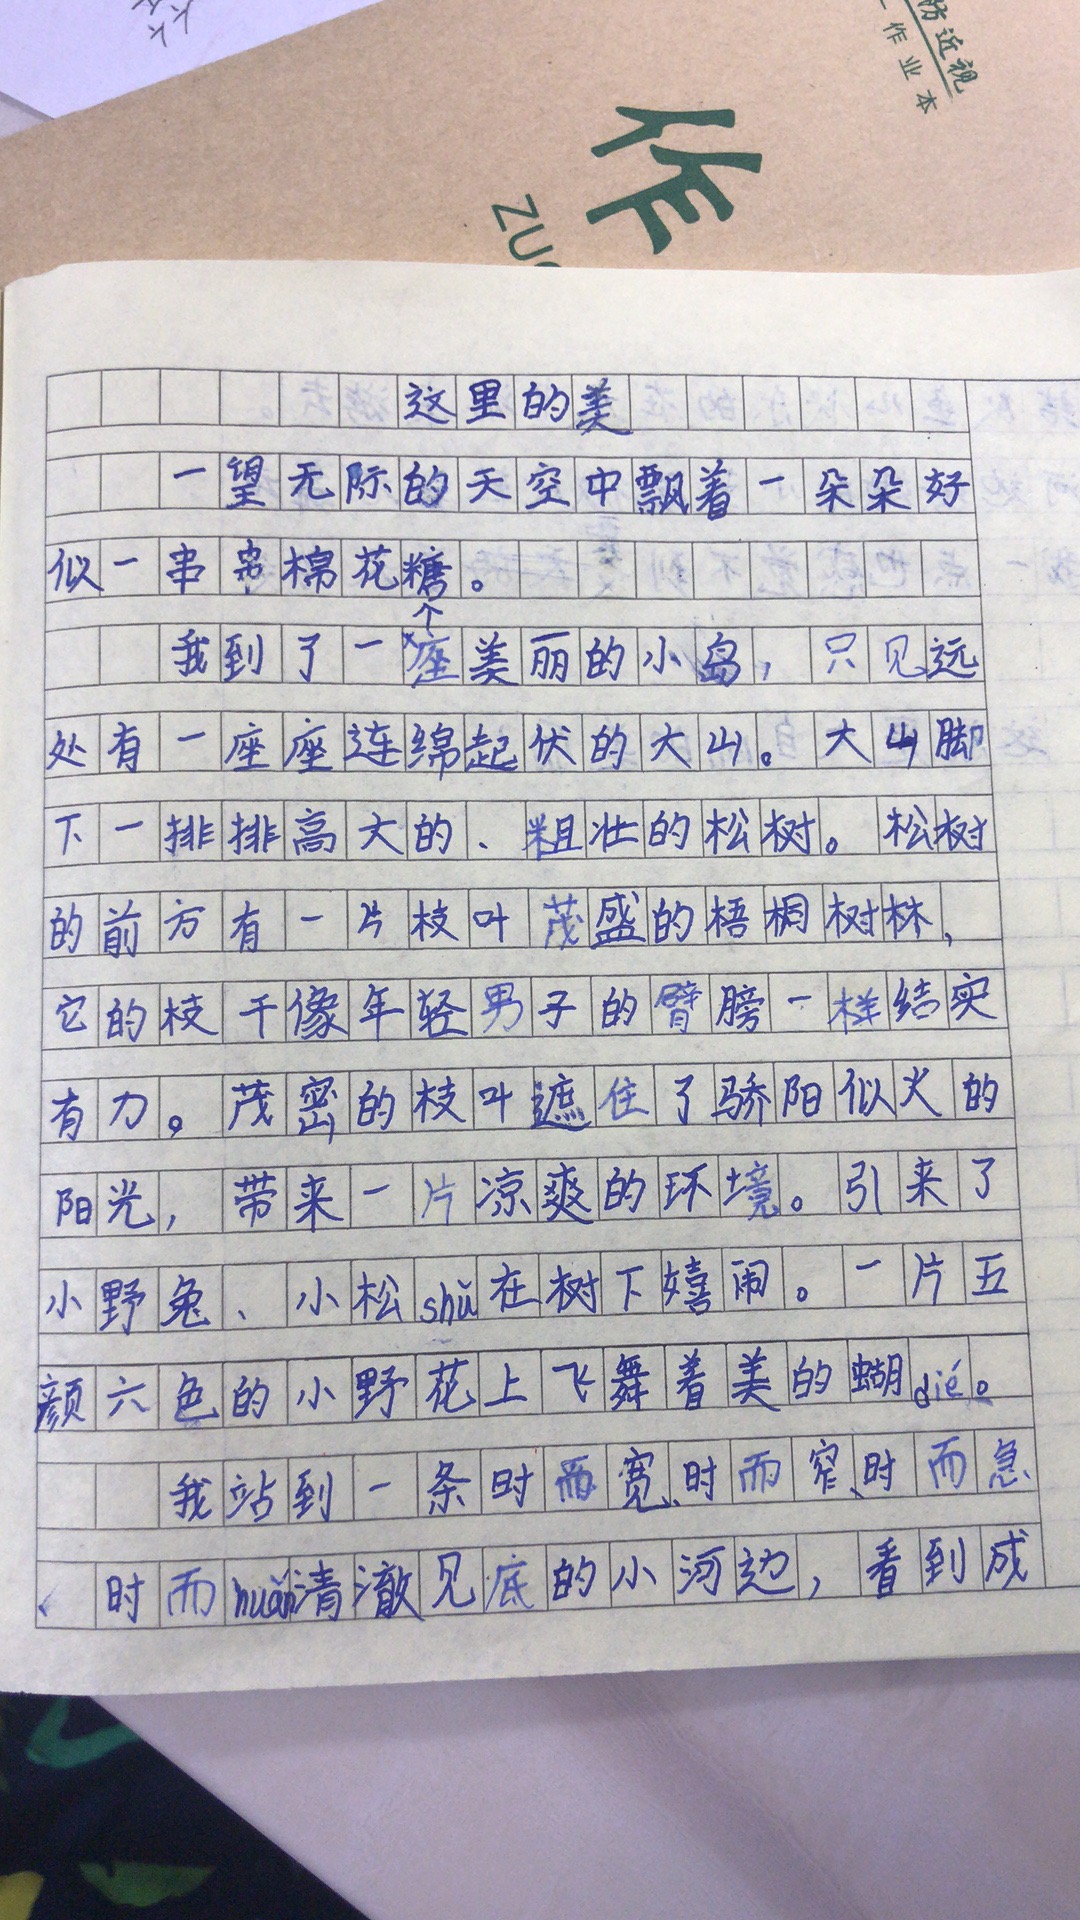 防近视
作业本
作
ZUO
这里的美
一望无际的天空中飘着一朵朵好
似一串串棉花糖。
我到了一座美丽的小岛，只见远
处有一座座连绵起伏的大山。大山脚
下一排排高大的、粗壮的松树。松树
的前方有一片枝叶茂盛的梧桐树林，
它的枝干像年轻男子的臂膀一样结实
有力。茂密的枝叶遮住了骄阳似火的
阳光，带来一片凉爽的环境。引来了
小野兔、小松shǔ在树下嬉闹。一片五
颜六色的小野花上飞舞着美的蝴dié。
我站到一条时而宽、时而窄、时而急
、时而huǎn清澈见底的小河边，看到成